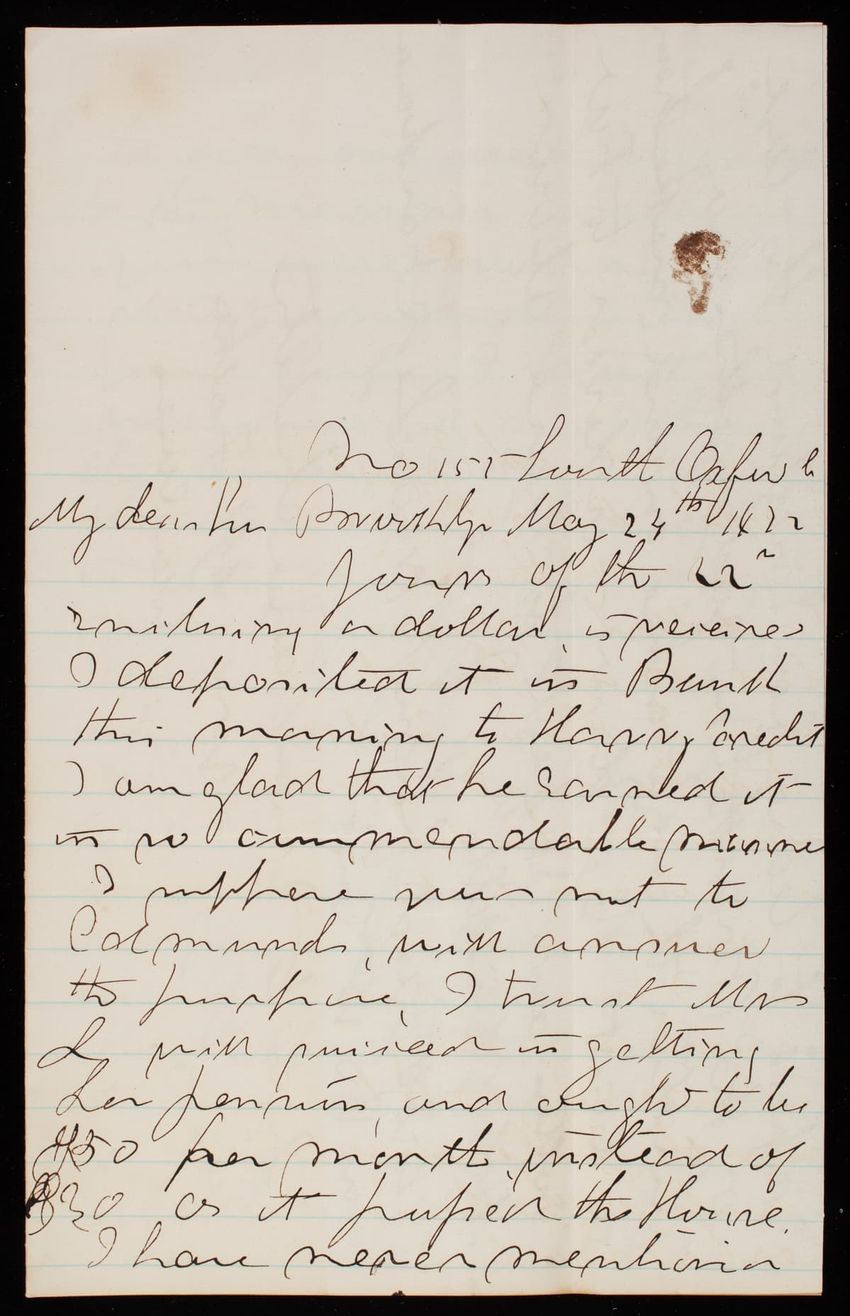 No 155 South Oxford
My dear Son Brooklyn May 24th 1872
Yours of the 22n
enclosing a dollar, is received
I deposited it in Bank
this morning to Harrys credit
I am glad that he earned it
in so commendable manner
I suppose yours not to
Edmunds, will answer
the purpose, I trust Mrs
L will succeed in getting
her pension, and ought to be
$50 per month, instead of
$30 as it passed the House.
I have never mentioned